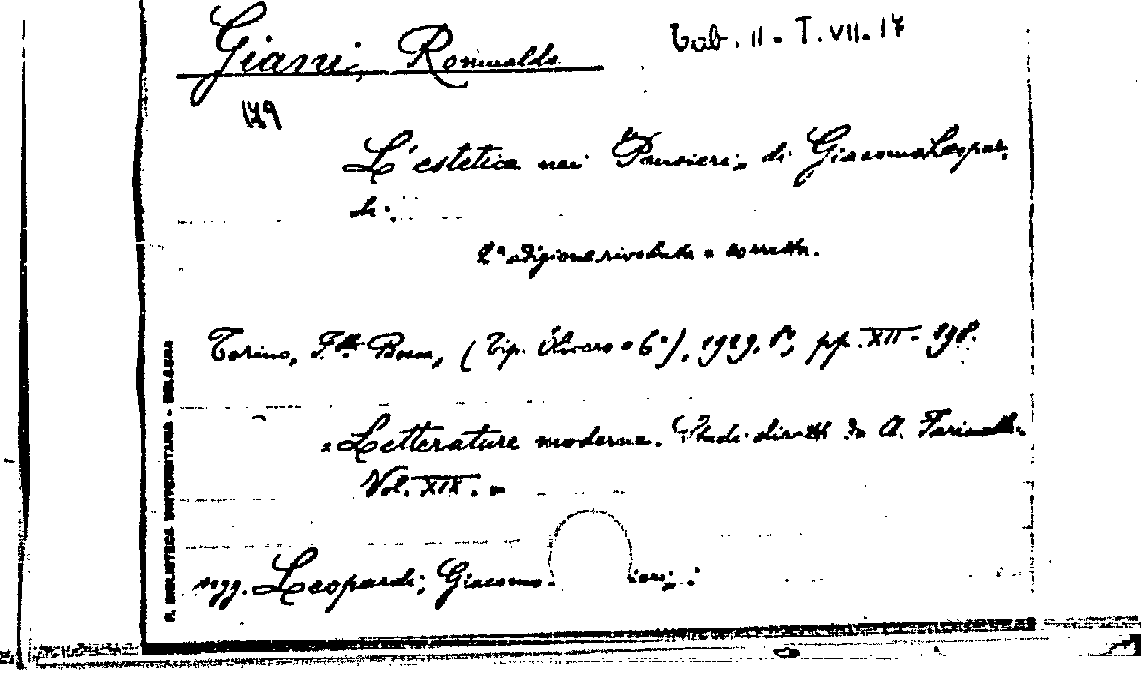 Giani, Romualdo
Tab. II - T. VII. 17
179
L'estetica nei "Pensieri" di Giacomo Leopar-
di.
2ª edizione riveduta e corretta.
Torino, F.lli Bocca, (Tip. Olivero e C.), 1929, 8º, pp. XII - 198.
"Letterature moderne. Studi diretti da A. Farinelli.
Vol. XIX."
sogg. Leopardi, Giacomo.
R. BIBLIOTECA UNIVERSITARIA - BOLOGNA